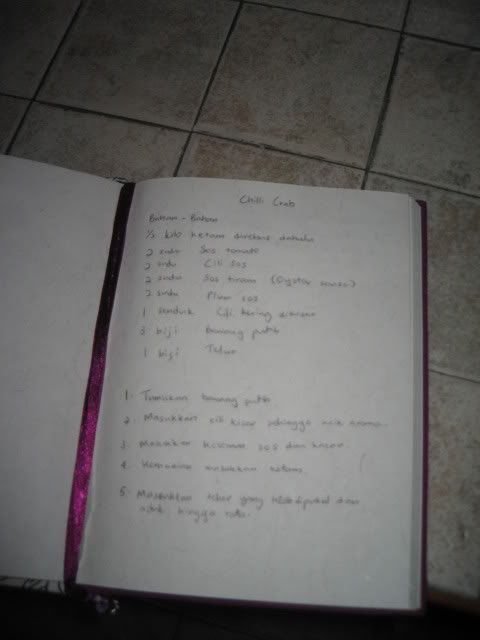 Chilli Crab
Bahan - Bahan
1/2 kilo ketam direbus dahulu
2 sudu Sos tomato
2 sudu Cili sos
2 sudu Sos tiram (Oyster sauce)
2 sudu Plum sos
1 senduk Cili kering dikisar
3 biji bawang putih
1 biji Telur
1. Tumiskan bawang putih
2. Masukkan cili kisar sehingga naik aroma.
3. Masukkan kesemua sos dan kacau.
4. Kemudian masukkan ketam.
5. Masukkan telur yang telah dipukul dan
hingga rata.